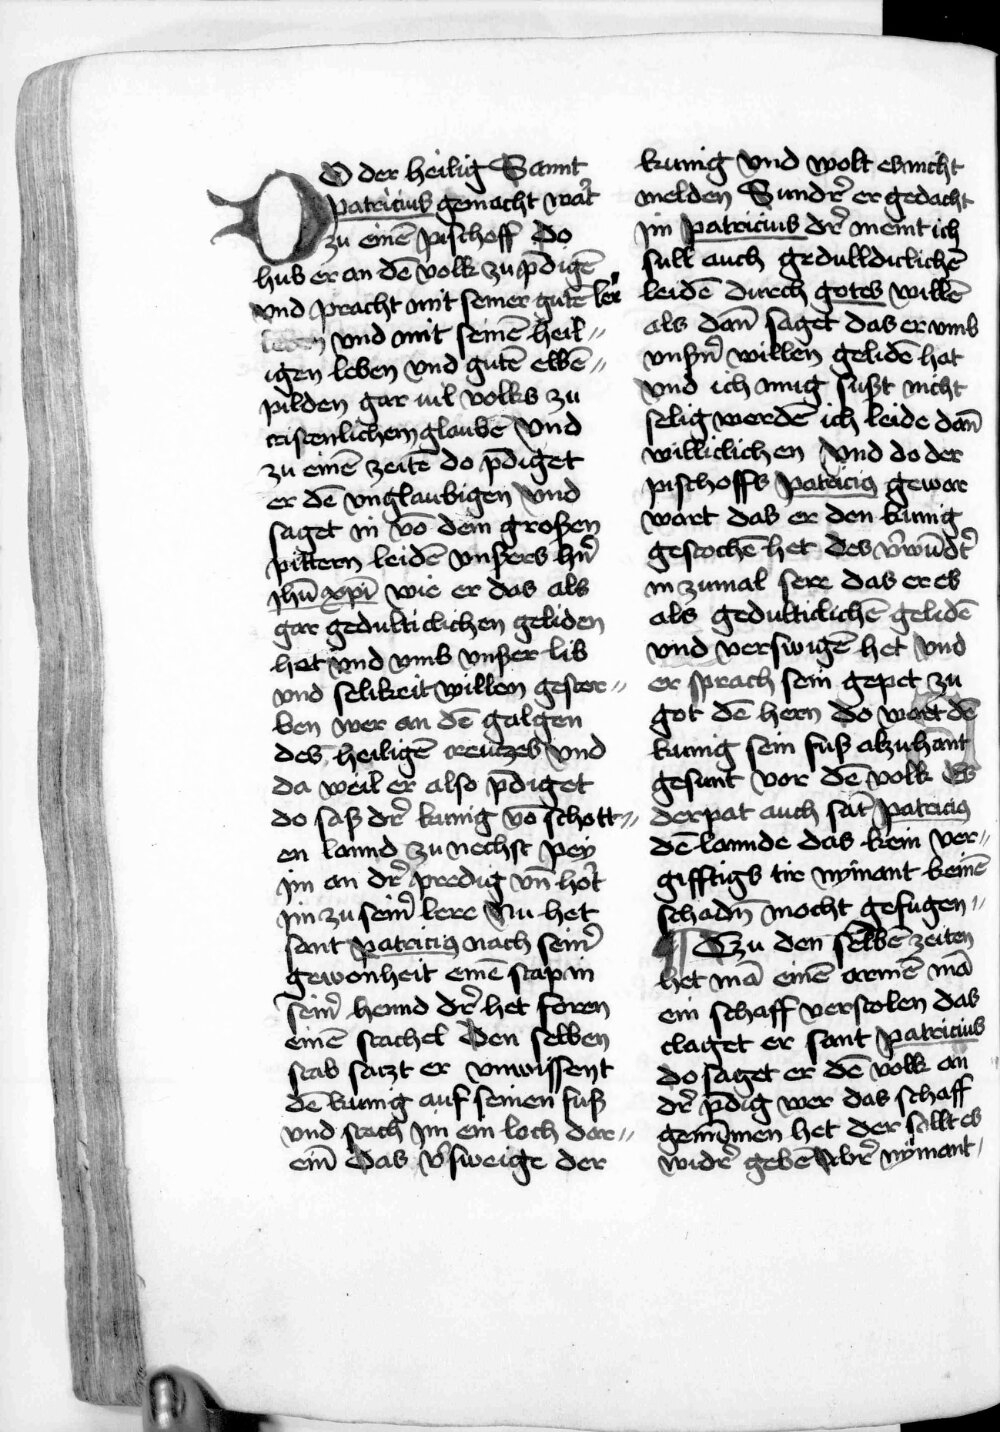 DO der heilig Sannt
patricius gemacht wart
zu einē pischoff Do
hub er an dē volk zu p̄digē
vnd pracht mit seiner gutē ler
leben vnd mit seinē heil〃
igen leben vnd gutē ebbē〃
pilden gar uil volks zu
cristenlichem glaubē Vnd
zu einē zeitē do p̄diget
er dē vnglaubigen Vnd
saget in vō dem großen
pittern leidē vnßers hn̄
jhū xp̄i wie er das als
gar gedulticlichen geliden
het vnd vmb vnßer lib
vnd selikeit willen gestor〃
ben wer an dē galgen
des heiligē creutzes Vnd
da weil er also p̄diget
do saß dr̄ kunig vō schott〃
en lannd zu nechst pey
jm an dr̄ predig vn̄ hort
jm zu sein̄ lere Nu het
sant patricius nach sein̄
gewonheit einē stap in
sein̄ hennd dr̄ het foren
einē stachel Den selben
stab satzt er vnwissent
dē kunig auf seinen fuß
vnd stach jm ein loch dar〃
ein̄ Das v̄sweige der
kunig Vnd wolt es nicht
melden Sundr̄ er gedacht
jm patricius dr̄ meint ich
sull auch gedulldiclichē
leidē durch gotes willē
als dan̄ saget das er vmb
vnßn̄ willen gelidē hat
Vnd ich mug sußt nicht
selig werdē ich leide dan̄
williclichen Vnd do der
pischoffs patricius gewar
wart das er den kunig
gestochē het des v̄wūdt̄
in zumal sere das er es
als gedulticlichē gelidē
vnd verswigē het Vnd
er sprach sein gepet zu
got dē hern Do wart dē
kunig sein fuß alzuhant
gesunt vor dē volk Es
derpat auch sāt patricius
dē lannde das kein ver〃
gifftigs tir nymant keinē
schadn̄ mocht gefugen〃
¶ Tzu den selbē zeiten
het mā einē armē mā
ein schaff verstolen das
claget er sant patricius
do saget er dē volk an
dr̄ p̄dig wer das schaff
genūmen het der sollt es
widr̄ gebē Abr̄ nymant